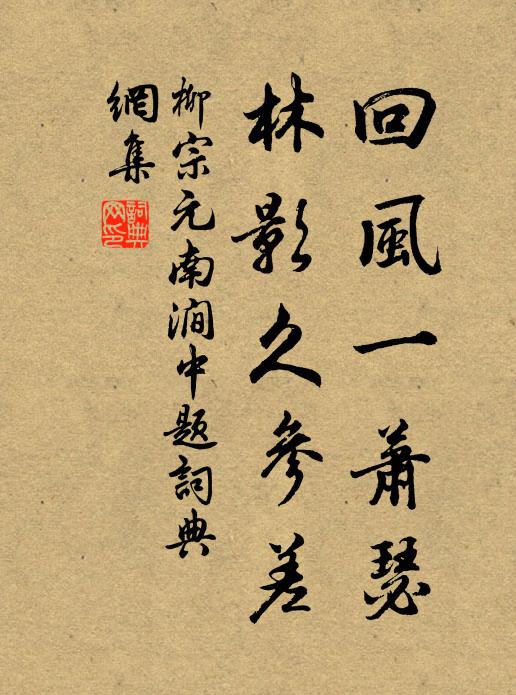 回風一蕭瑟
林影久參差
柳宗元南澗中題詞典
網集
詞典
网印